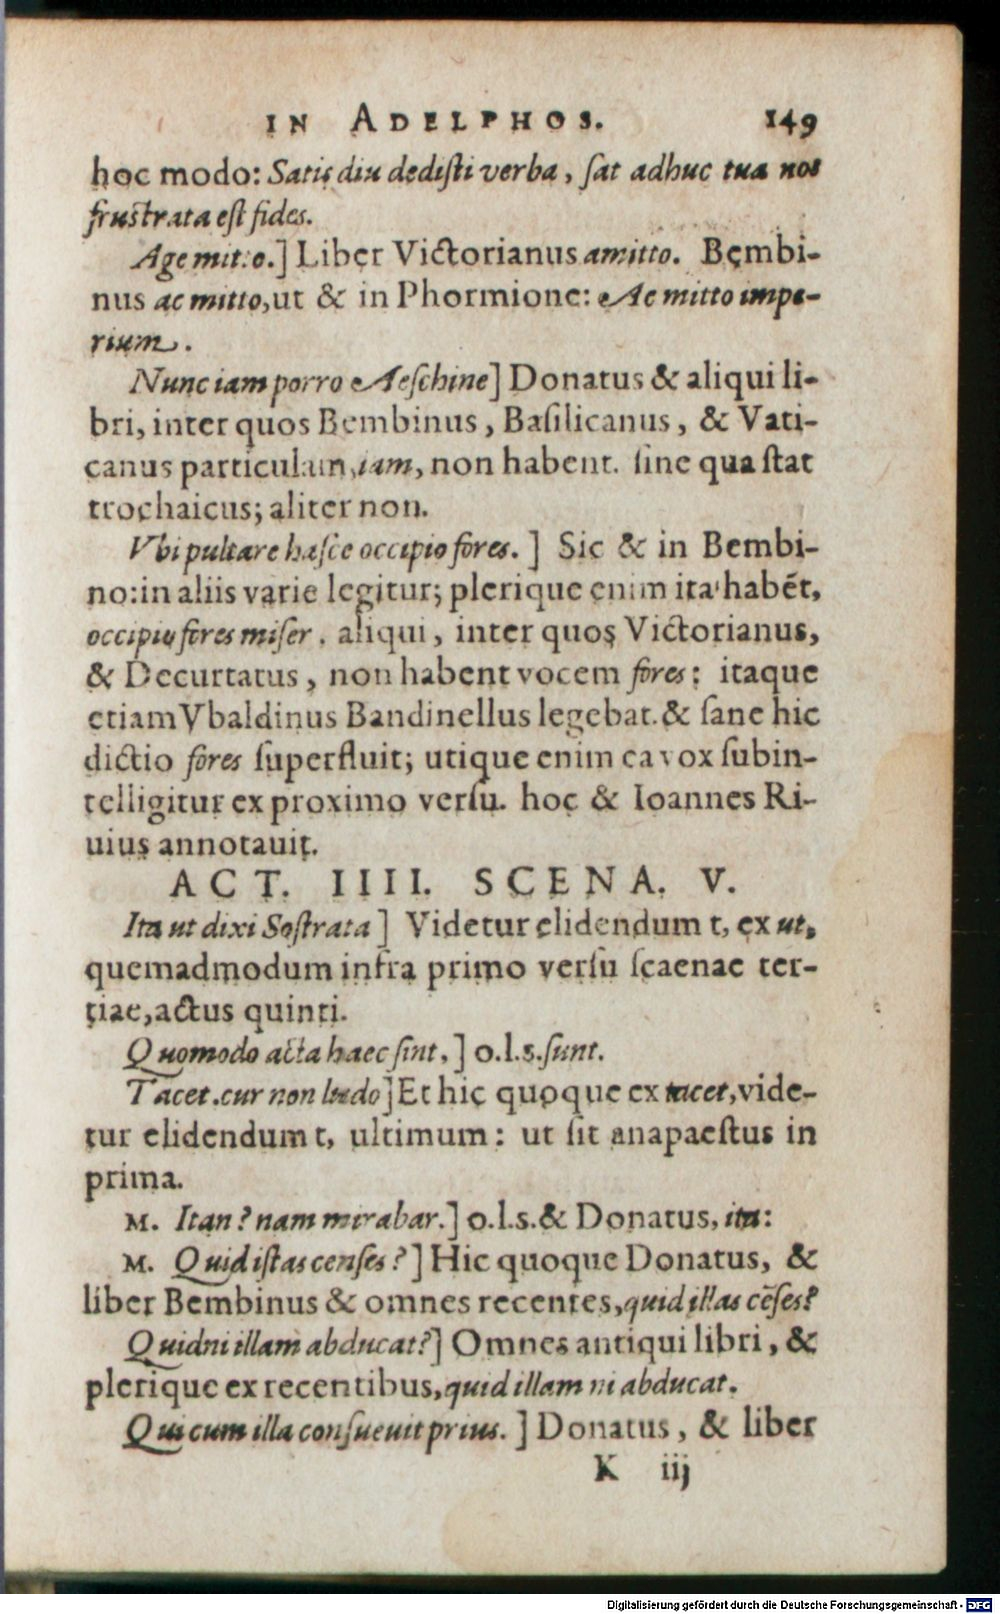 IN ADELPHOS. 149
hoc modo: Satis diu dedisti verba, sat adhuc tua nos
frustrata est fides.
Age mitto.] Liber Victorianus amitto. Bembi-
nus ac mitto, ut & in Phormione: Ac mitto impe-
rium.
Nunc iam porro Aeschine] Donatus & aliqui li-
bri, inter quos Bembinus, Basilicanus, & Vati-
canus particulam, iam, non habent. sine qua stat
trochaicus; aliter non.
Vbi pultare hasce occipio fores.] Sic & in Bembi-
no: in aliis varie legitur; plerique enim ita habēt,
occipio fores miser. aliqui, inter quos Victorianus,
& Decurtatus, non habent vocem fores: itaque
etiam Vbaldinus Bandinellus legebat. & sane hic
dictio fores superfluit; utique enim ea vox subin-
telligitur ex proximo versu. hoc & Ioannes Ri-
uius annotauit.
ACT. IIII. SCENA. V.
Ita ut dixi Sostrata] Videtur elidendum t, ex ut,
quemadmodum infra primo versu scaenae ter-
tiae, actus quinti.
Quomodo acta haec sint.] o.l.s. sunt.
Tacet. cur non ludo] Et hic quoque ex tacet, vide-
tur elidendum t, ultimum: ut sit anapaestus in
prima.
M. Itan? nam mirabar.] o.l.s. & Donatus, ita:
M. Quid istas censes?] Hic quoque Donatus, &
liber Bembinus & omnes recentes, quid illas cēses?
Quidni illam abducat?] Omnes antiqui libri, &
plerique ex recentibus, quid illam ni abducat.
Qui cum illa consueuit prius.] Donatus, & liber
K iij
Digitalisierung gefördert durch die Deutsche Forschungsgemeinschaft - DFG